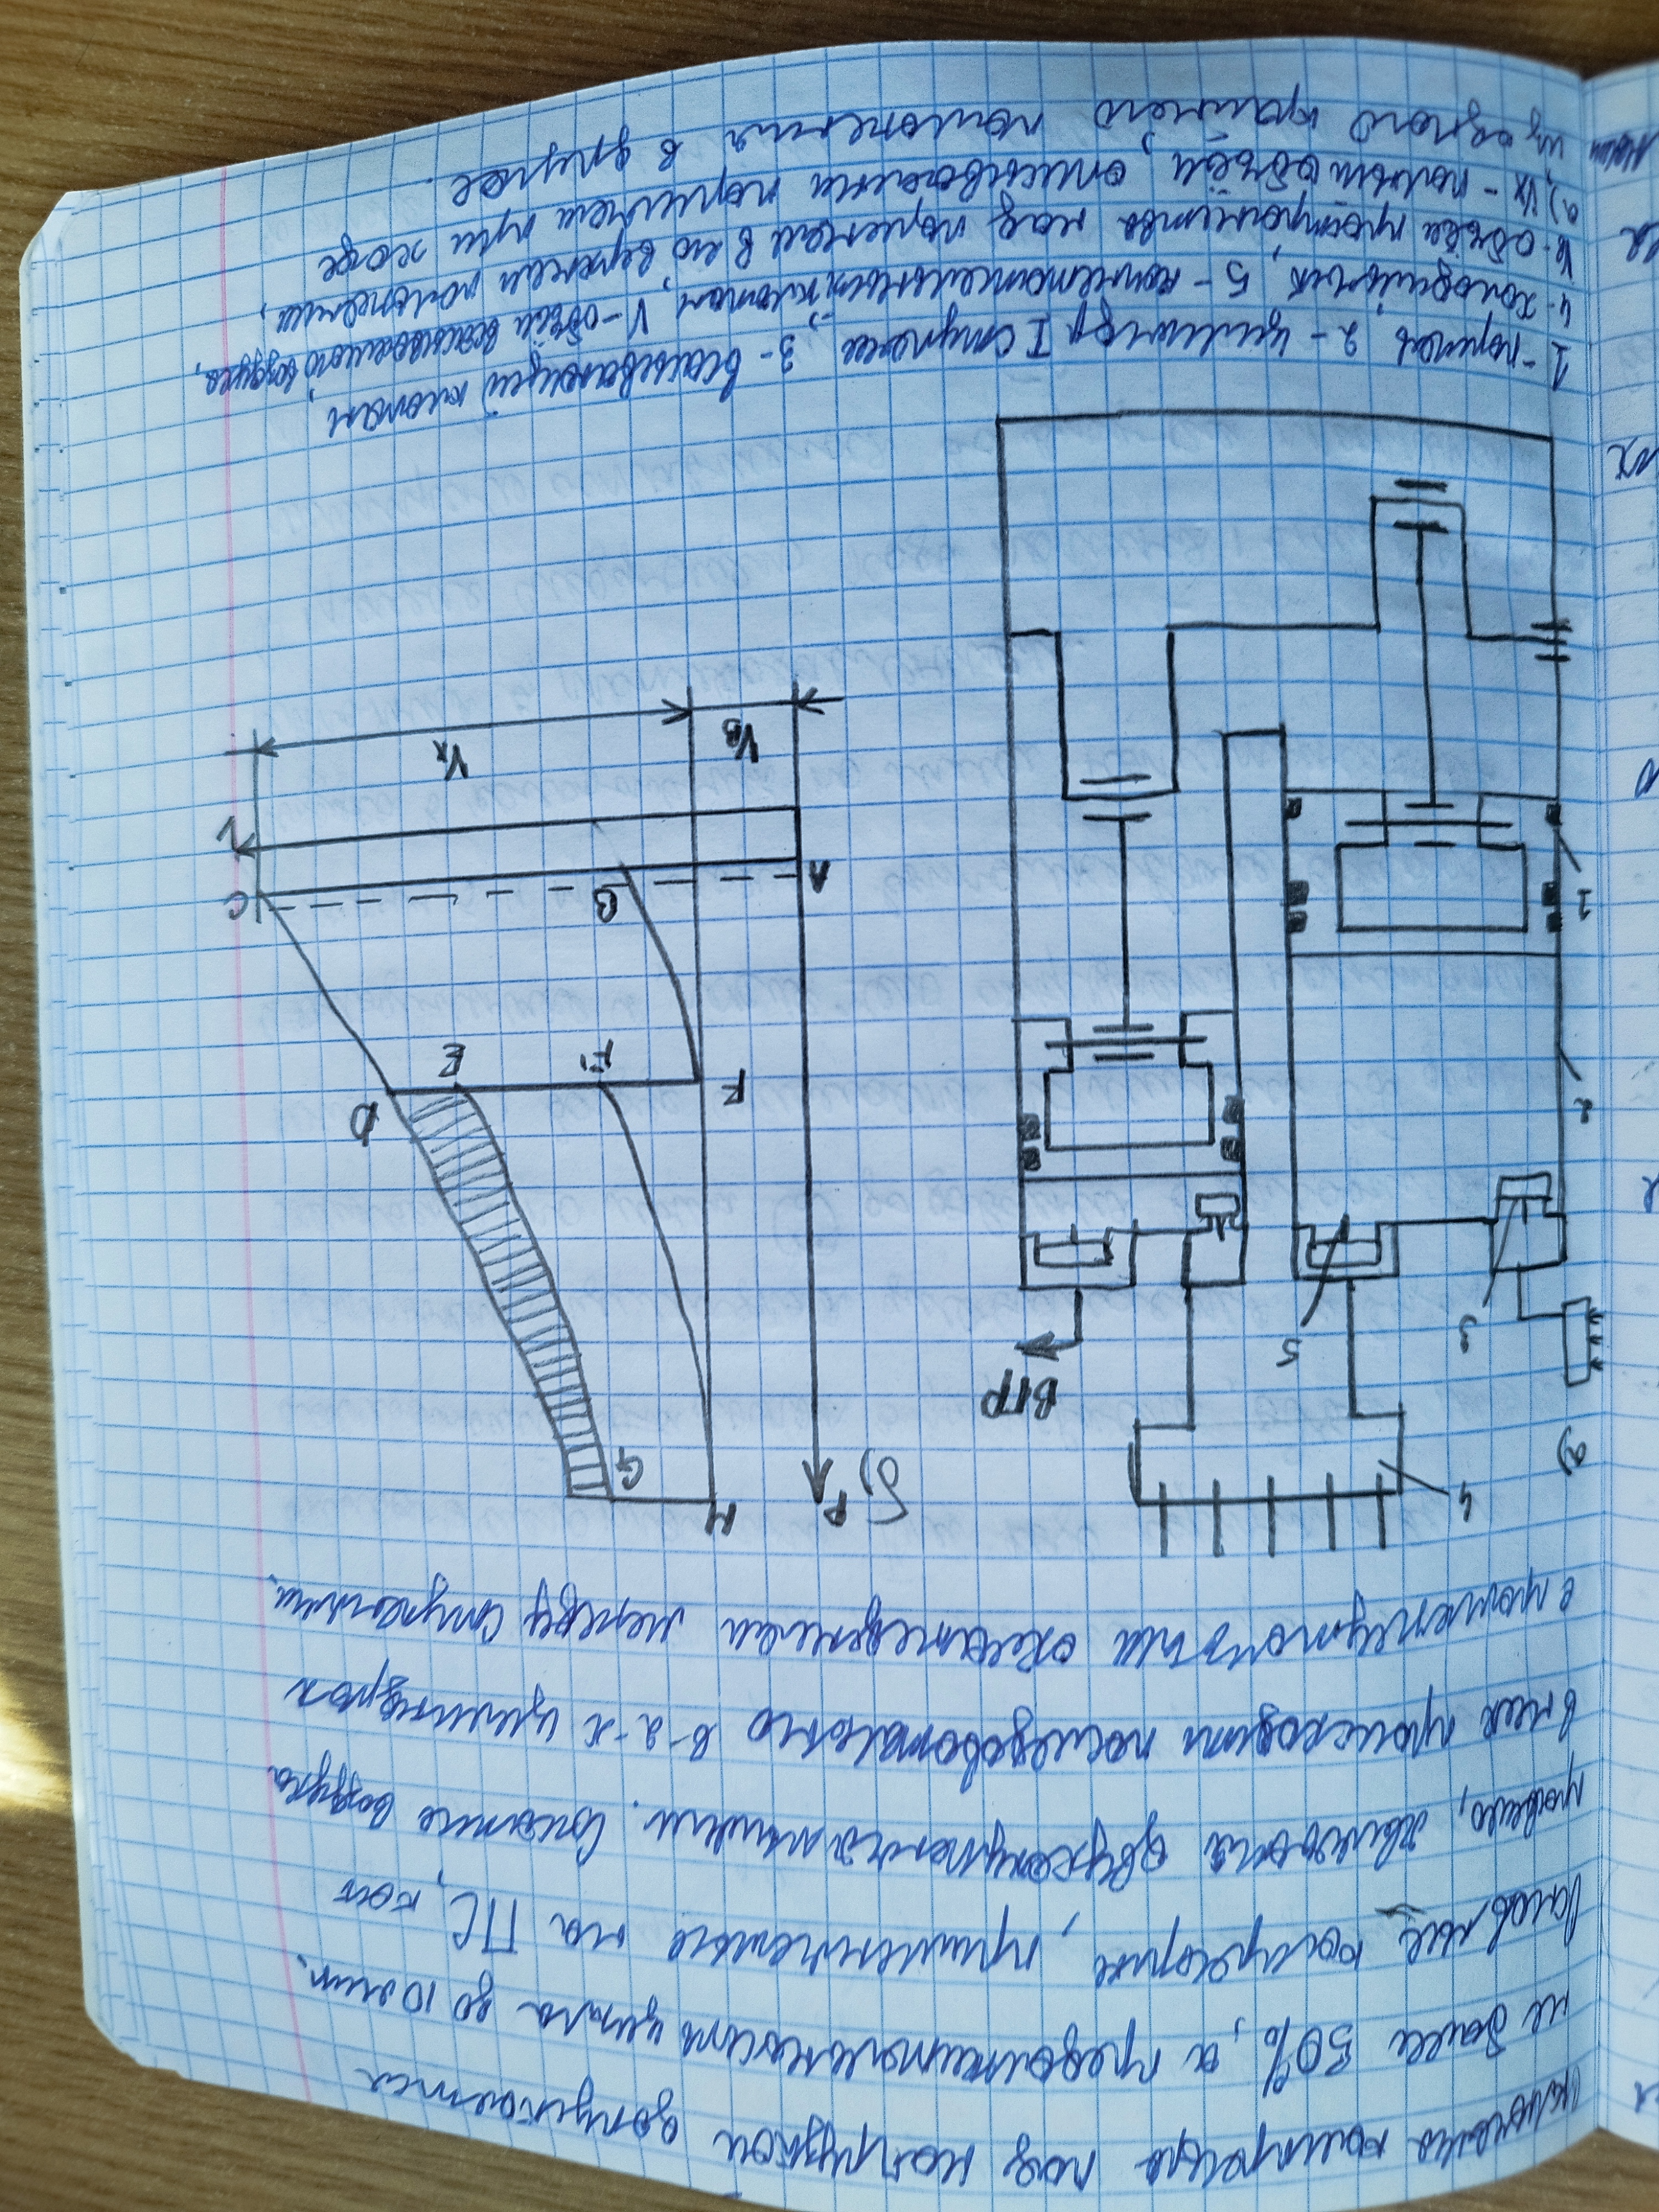 включения компрессора под нагрузкой допускается
не более 50%, а продолжительность цикла до 10 мин.
компрессоры, применяемые на ПС, как
правило, являются двухступенчатыми. Сжатие воздуха
в них происходит последовательно в 2-х цилиндрах
с промежуточным охлаждением между ступенями.
а)
б)
4
P
H
G
ВГР
3
5
2
1
D
E
F1
F
C
B
A
V
Vх
VВ
1-поршень 2-цилиндр I ступени 3-всасывающий клапан
4-холодильник, 5-нагнетательный клапан, V-объём всасываемого воздуха,
объём пространства над поршнем в его верхнем положении,
а) Vх-полный объём, описываемый поршнем при ходе
из одного крайнего положения в другое.